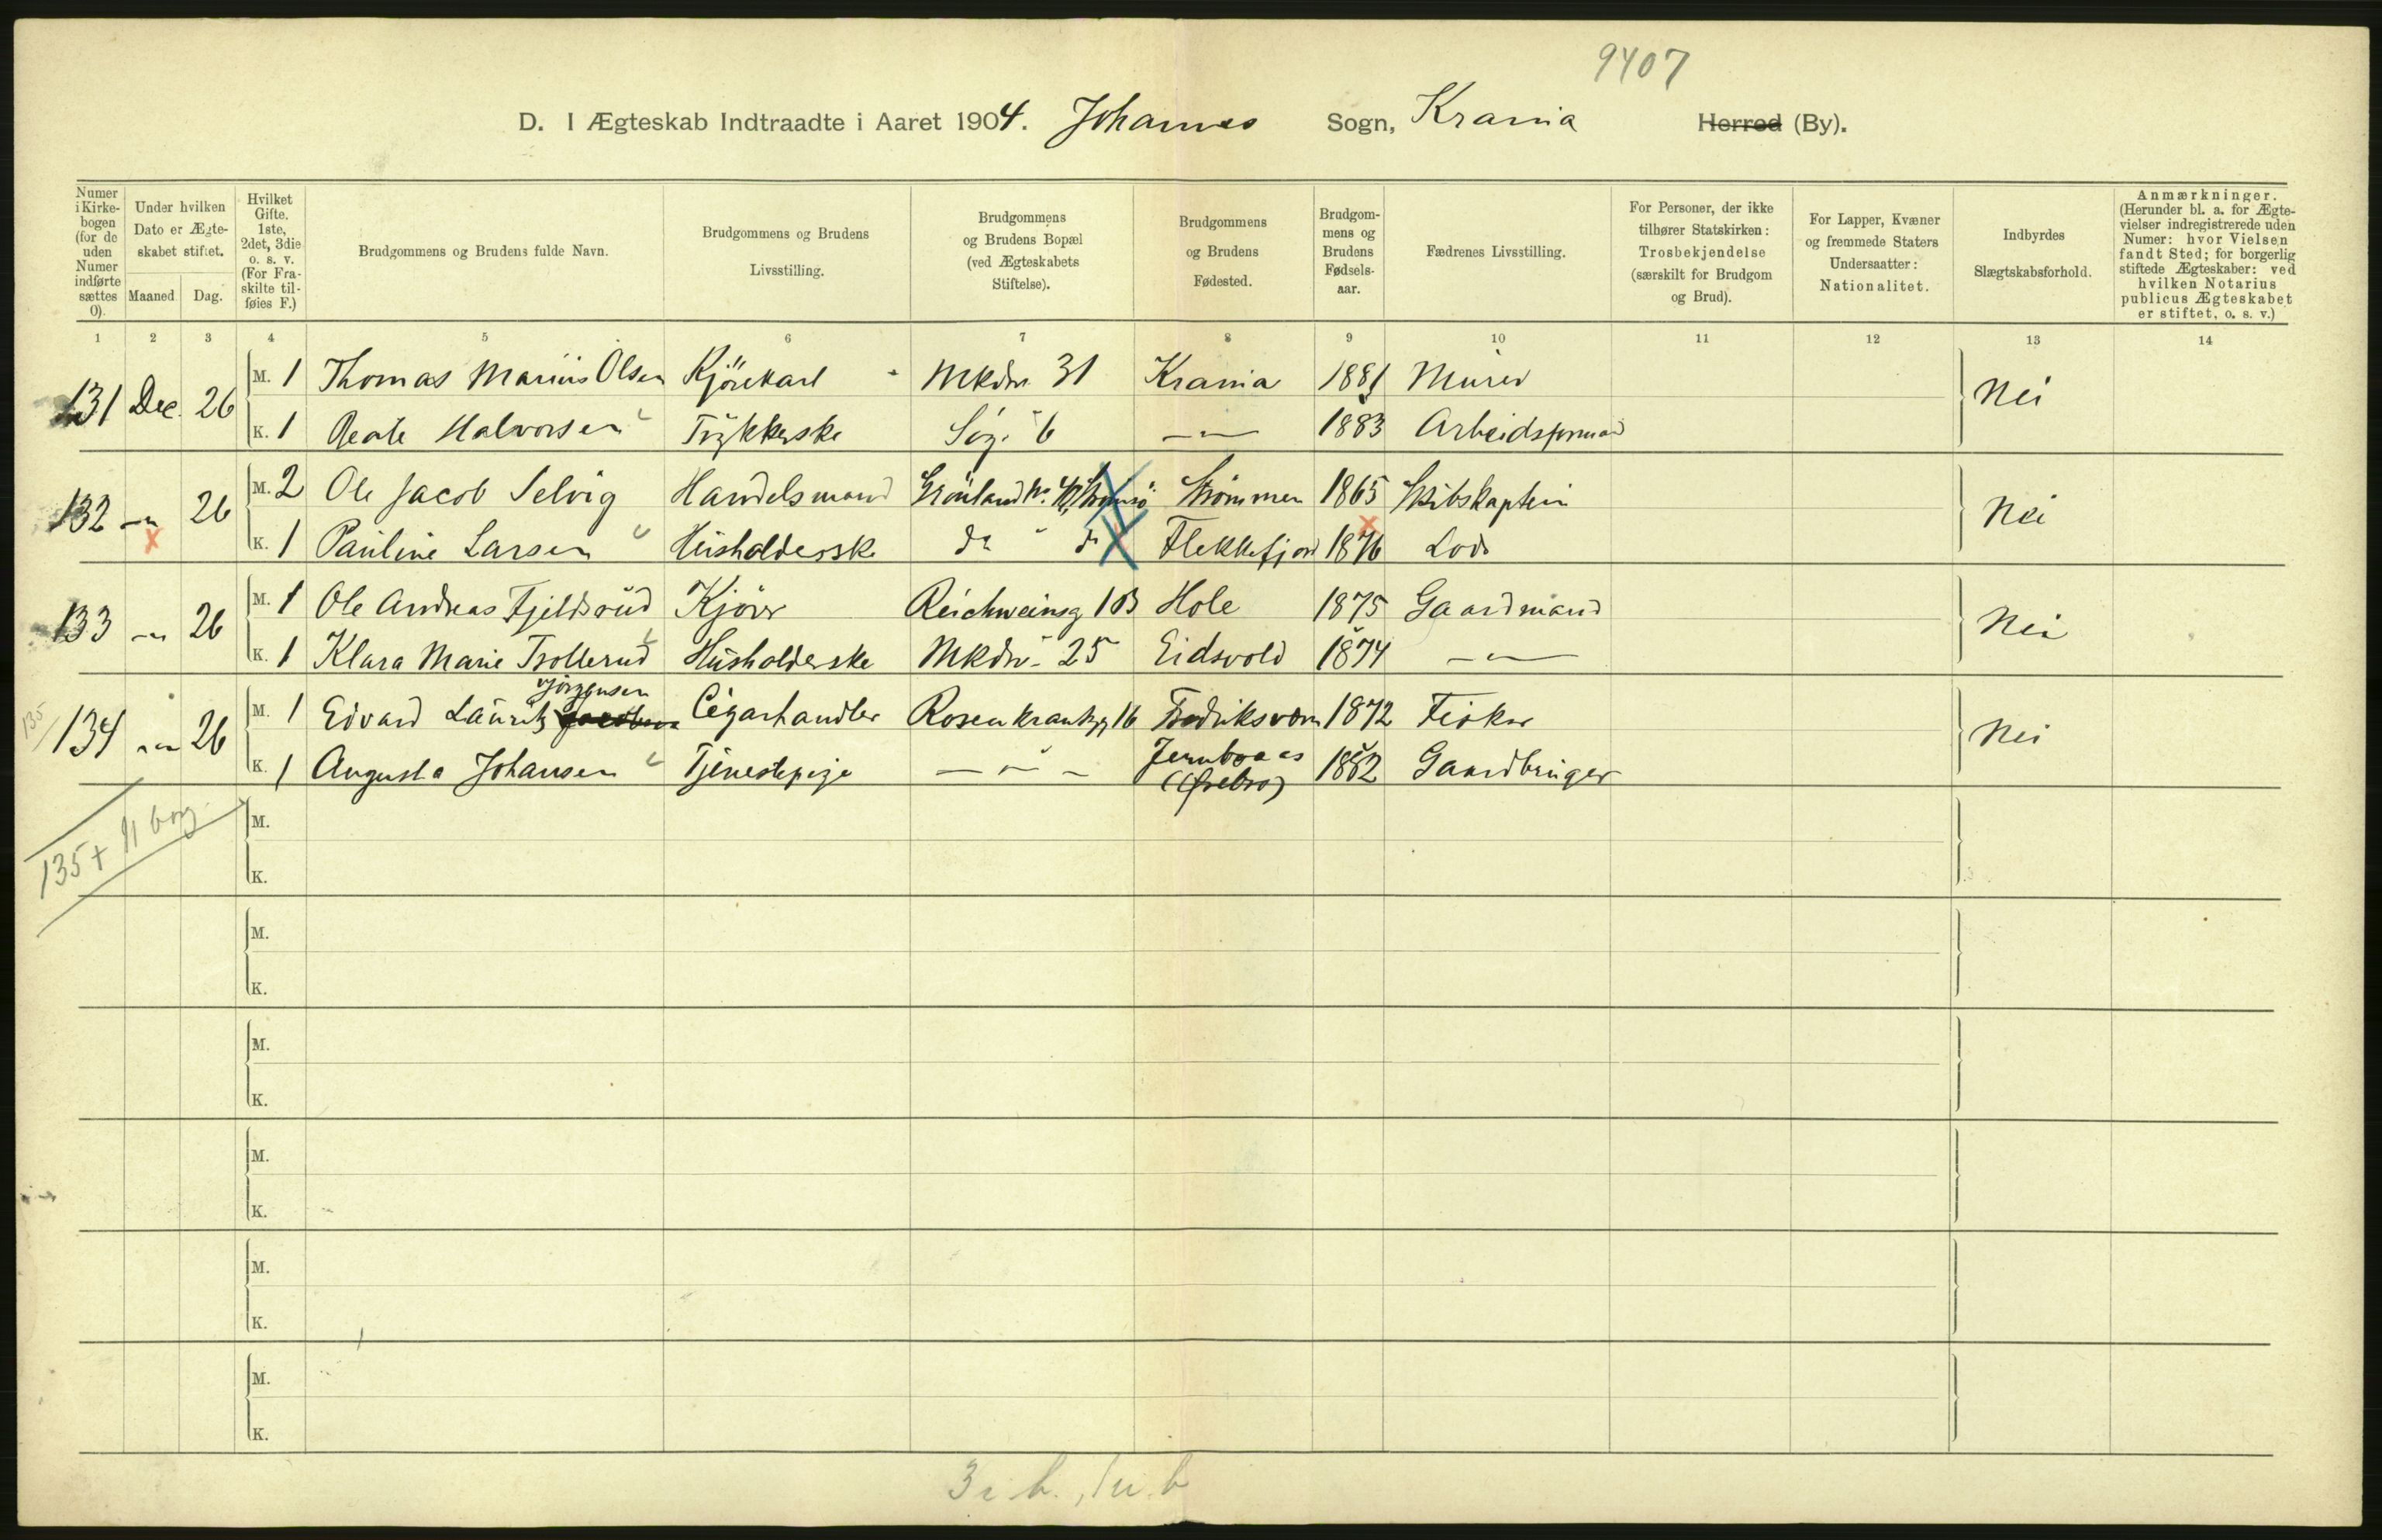 9407
D. I Ægteskab Indtraadte i Aaret 1904. Johannes Sogn, Krania Herred (By).
Numer i Kirke-bogen (for de uden Numer indførte sættes 0).
Under hvilken Dato er Ægte-skabet stiftet.
Maaned. Dag.
Hvilket Gifte. 1ste, 2det, 3die o. s. v. (For Fra-skilte til-føies F.)
Brudgommens og Brudens fulde Navn.
Brudgommens og Brudens Livsstilling.
Brudgommens og Brudens Bopæl (ved Ægteskabets Stiftelse).
Brudgommens og Brudens Fødested.
Brudgom-mens og Brudens Fødsels-aar.
Fædrenes Livsstilling.
For Personer, der ikke tilhører Statskirken: Trosbekjendelse (særskilt for Brudgom og Brud).
For Lapper, Kvæner og fremmede Staters Undersaatter: Nationalitet.
Indbyrdes Slægtskabsforhold.
Anmærkninger. (Herunder bl. a. for Ægte-vielser indregistrerede uden Numer: hvor Vielsen fandt Sted; for borgerlig stiftede Ægteskaber: ved hvilken Notarius publicus Ægteskabet er stiftet, o. s. v.)
1 2 3 4 5 6 7 8 9 10 11 12 13 14
131 Dec. 26 M. 1 Thomas Marius Olsen Kjörekarl Mkdv. 31 Krania 1881 Murer Nei
K. 1 Beate Halvorsen Trykkerske 6 — " — 1883 Arbeidsformand
132 — " 26 M. 2 Ole Jacob Selvig Handelsmand Grönland Strömmen 1865 Skibskaptein Nei
K. 1 Pauline Larsen Husholderske do " do Flekkefjord 1876 Lods
133 — " 26 M. 1 Ole Andreas Fjeldsrud Kjörer Reichweinsg 1B Hole 1875 Gaardmand Nei
K. 1 Klara Marie Trollerud Husholderske Mkdv. 25 Eidsvold 1874 — " —
135/ 134 — " 26 M. 1 Edvard Lauritz Jacobsen Jörgensen Cigarhandler Rosenkrantzg 16 Fredriksværn 1872 Fisker Nei
K. 1 Augusta Johansen Tjenestepige — " — Jernboaas (Ørebro) 1882 Gaardbruger
135 + 11 borg.
M.
K.
M.
K.
M.
K.
M.
K.
M.
K.
M.
K.